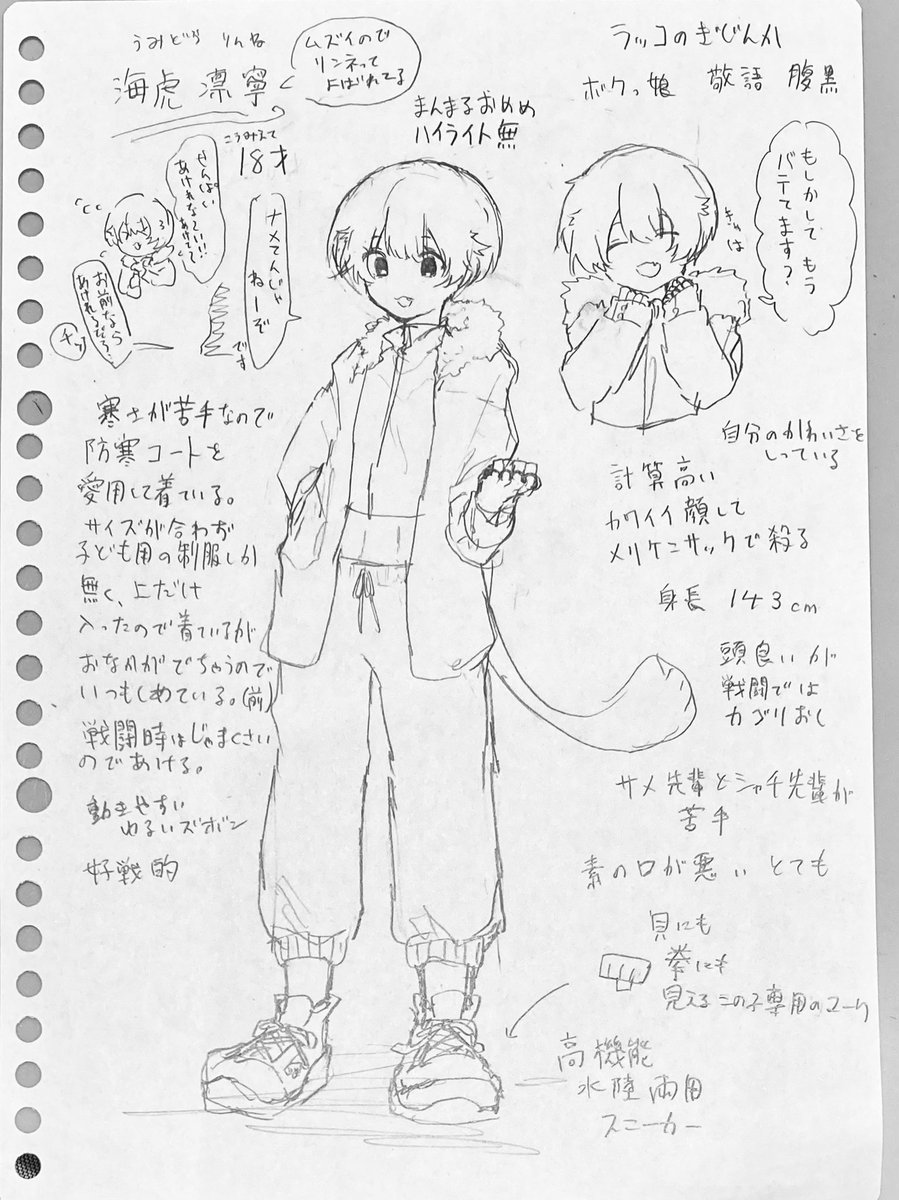 うみどら りんね
海虎 凛寧
ムズイので
リンネって
よばれてる
こうみえて
18才
せんぱい
あけれなくていい!!
あけてて
お前なら
あけれるだろ?
チッ
ナメてんじゃ
ねーぞ
です
まんまるおめめ
ハイライト無
ラッコのぎじんか
ボクっ娘 敬語 腹黒
もしかして もう
バテてます?
きゃは
寒さが苦手なので
防寒コートを
愛用して着ている。
サイズが合わず
子ども用の制服しか
無く、上だけ
入ったので着ているが
おなかがでちゃうので
いつもしめている。(前)
戦闘時はじゃまくさい
のであける。
動きやすい
ゆるいズボン
好戦的
自分のかわいさを
しっている
計算高い
カワイイ顔して
メリケンサックで殺る
身長 143cm
頭良いが
戦闘では
力ごりおし
サメ先輩とシャチ先輩が
苦手
素の口が悪い とても
貝にも
拳にも
見えるこの子専用のマーク
高機能
水陸両用
スニーカー